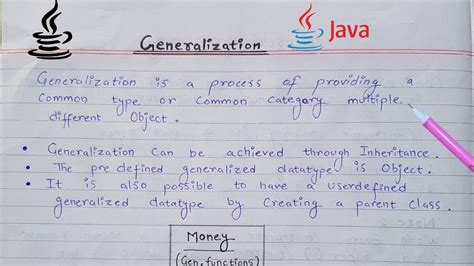 Generalization
Java
Generalization is a process of providing a
Common type or Common Category multiple
different Object.
• Generalization Can be achieved through Inheritance.
• The pre defined generalized datatype is Object.
• It is also possible to have a userdefined
generalized datatype by Creating a parent Class.
Money
(Gen. functions)